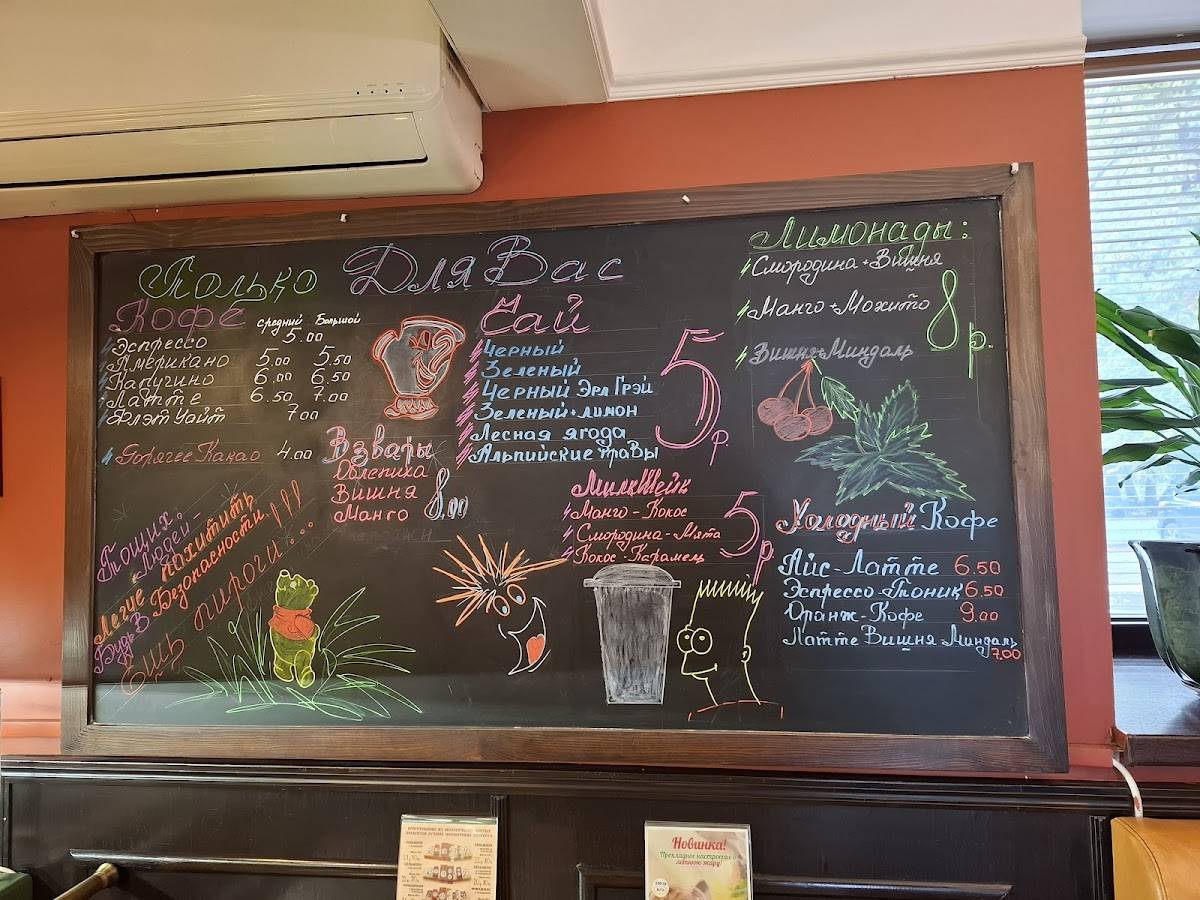 Только Для Вас
Кофе средний Большой
Эспрессо 5.00
Американо 5.00 5.50
Капучино 6.00 6.50
Латте 6.50 7.00
Флэт Уайт 7.00
Горячее Какао 4.00
Взвары
Облепиха
Вишня
Манго
8.00
Чай
Черный
Зеленый
Черный Эрл Грэй
Зеленый + лимон
Лесная ягода
Альпийские травы
5 р.
МилкШейк
Манго - Кокос
Смородина - Мята
Кокос - Карамель
5 р
Лимонады:
Смородина + Вишня
Манго + Мохито
Вишня + Миндаль
8 р.
Холодный Кофе
Айс - Латте 6.50
Эспрессо - Тоник 6.50
Оранж - Кофе 9.00
Латте Вишня - Миндаль 7.00
Тощих
Людей -
Легче похитить
Будь в Безопасности!!!
Ешь пироги...
Новинка!
Прохладное настроение в
летнюю жару!